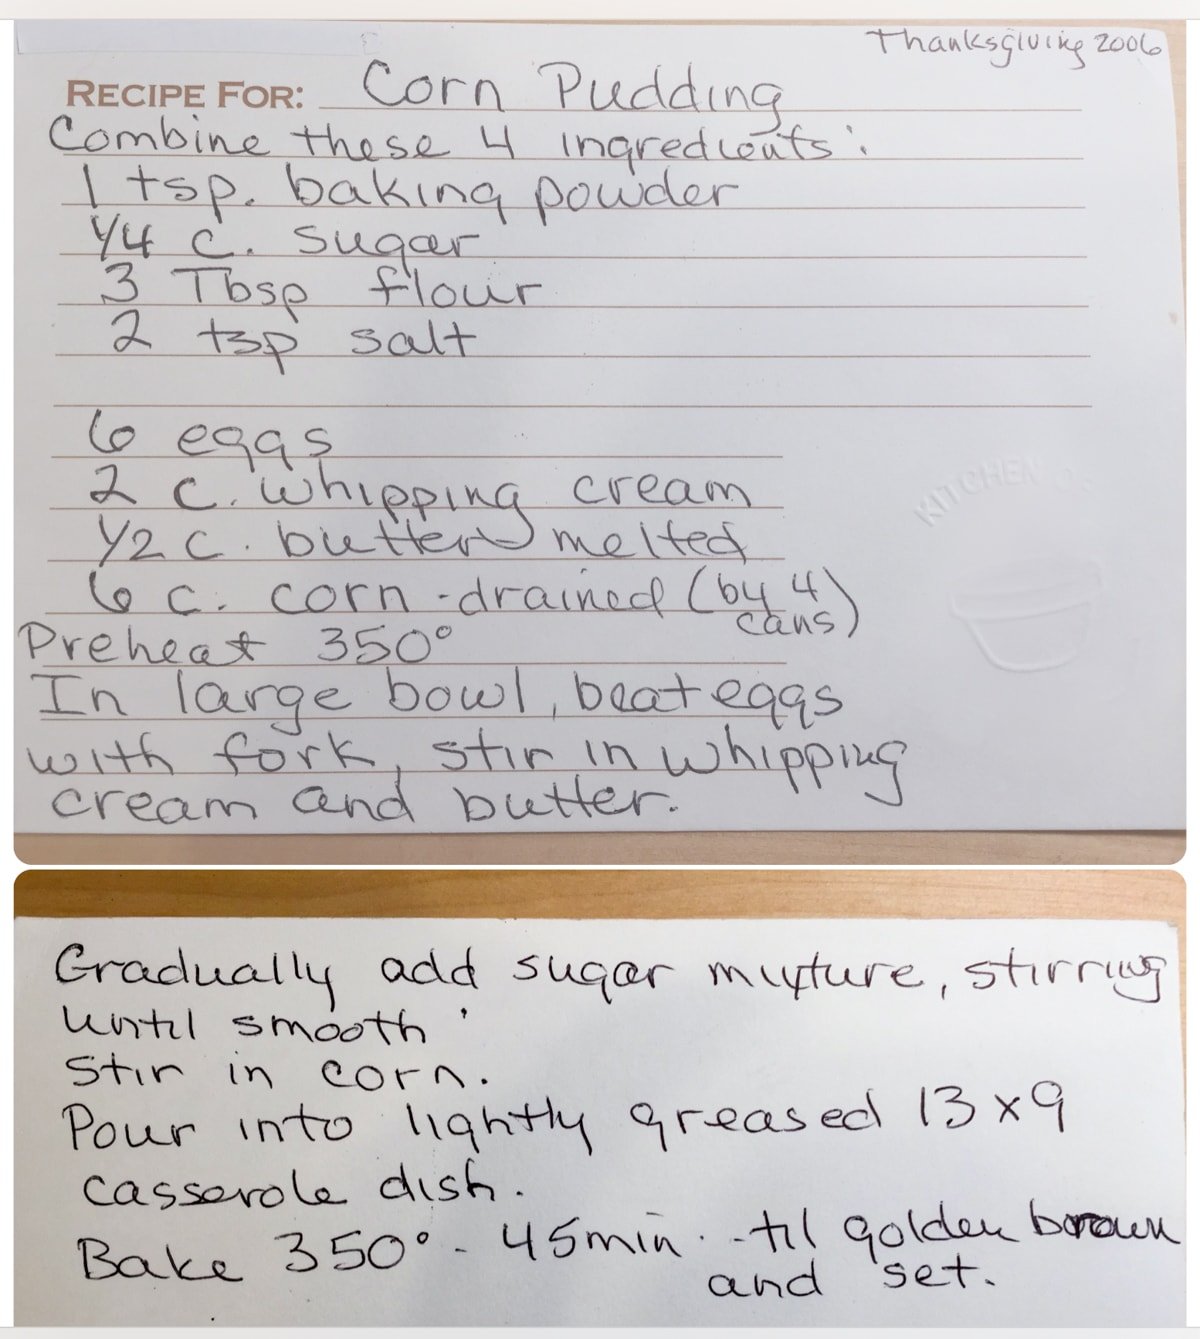 Thanksgiving 2006
RECIPE FOR: Corn Pudding
Combine these 4 ingredients:
1 tsp. baking powder
1/4 c. sugar
3 Tbsp flour
2 tsp salt
6 eggs
2 c. whipping cream
1/2 c. butter melted
6 c. corn - drained (by 4
cans)
KITCHEN OF
Preheat 350°
In large bowl, beat eggs
with fork, stir in whipping
cream and butter.
Gradually add sugar mixture, stirring
until smooth
Stir in corn.
Pour into lightly greased 13 x 9
casserole dish.
Bake 350° - 45 min. - til golden brown
and set.